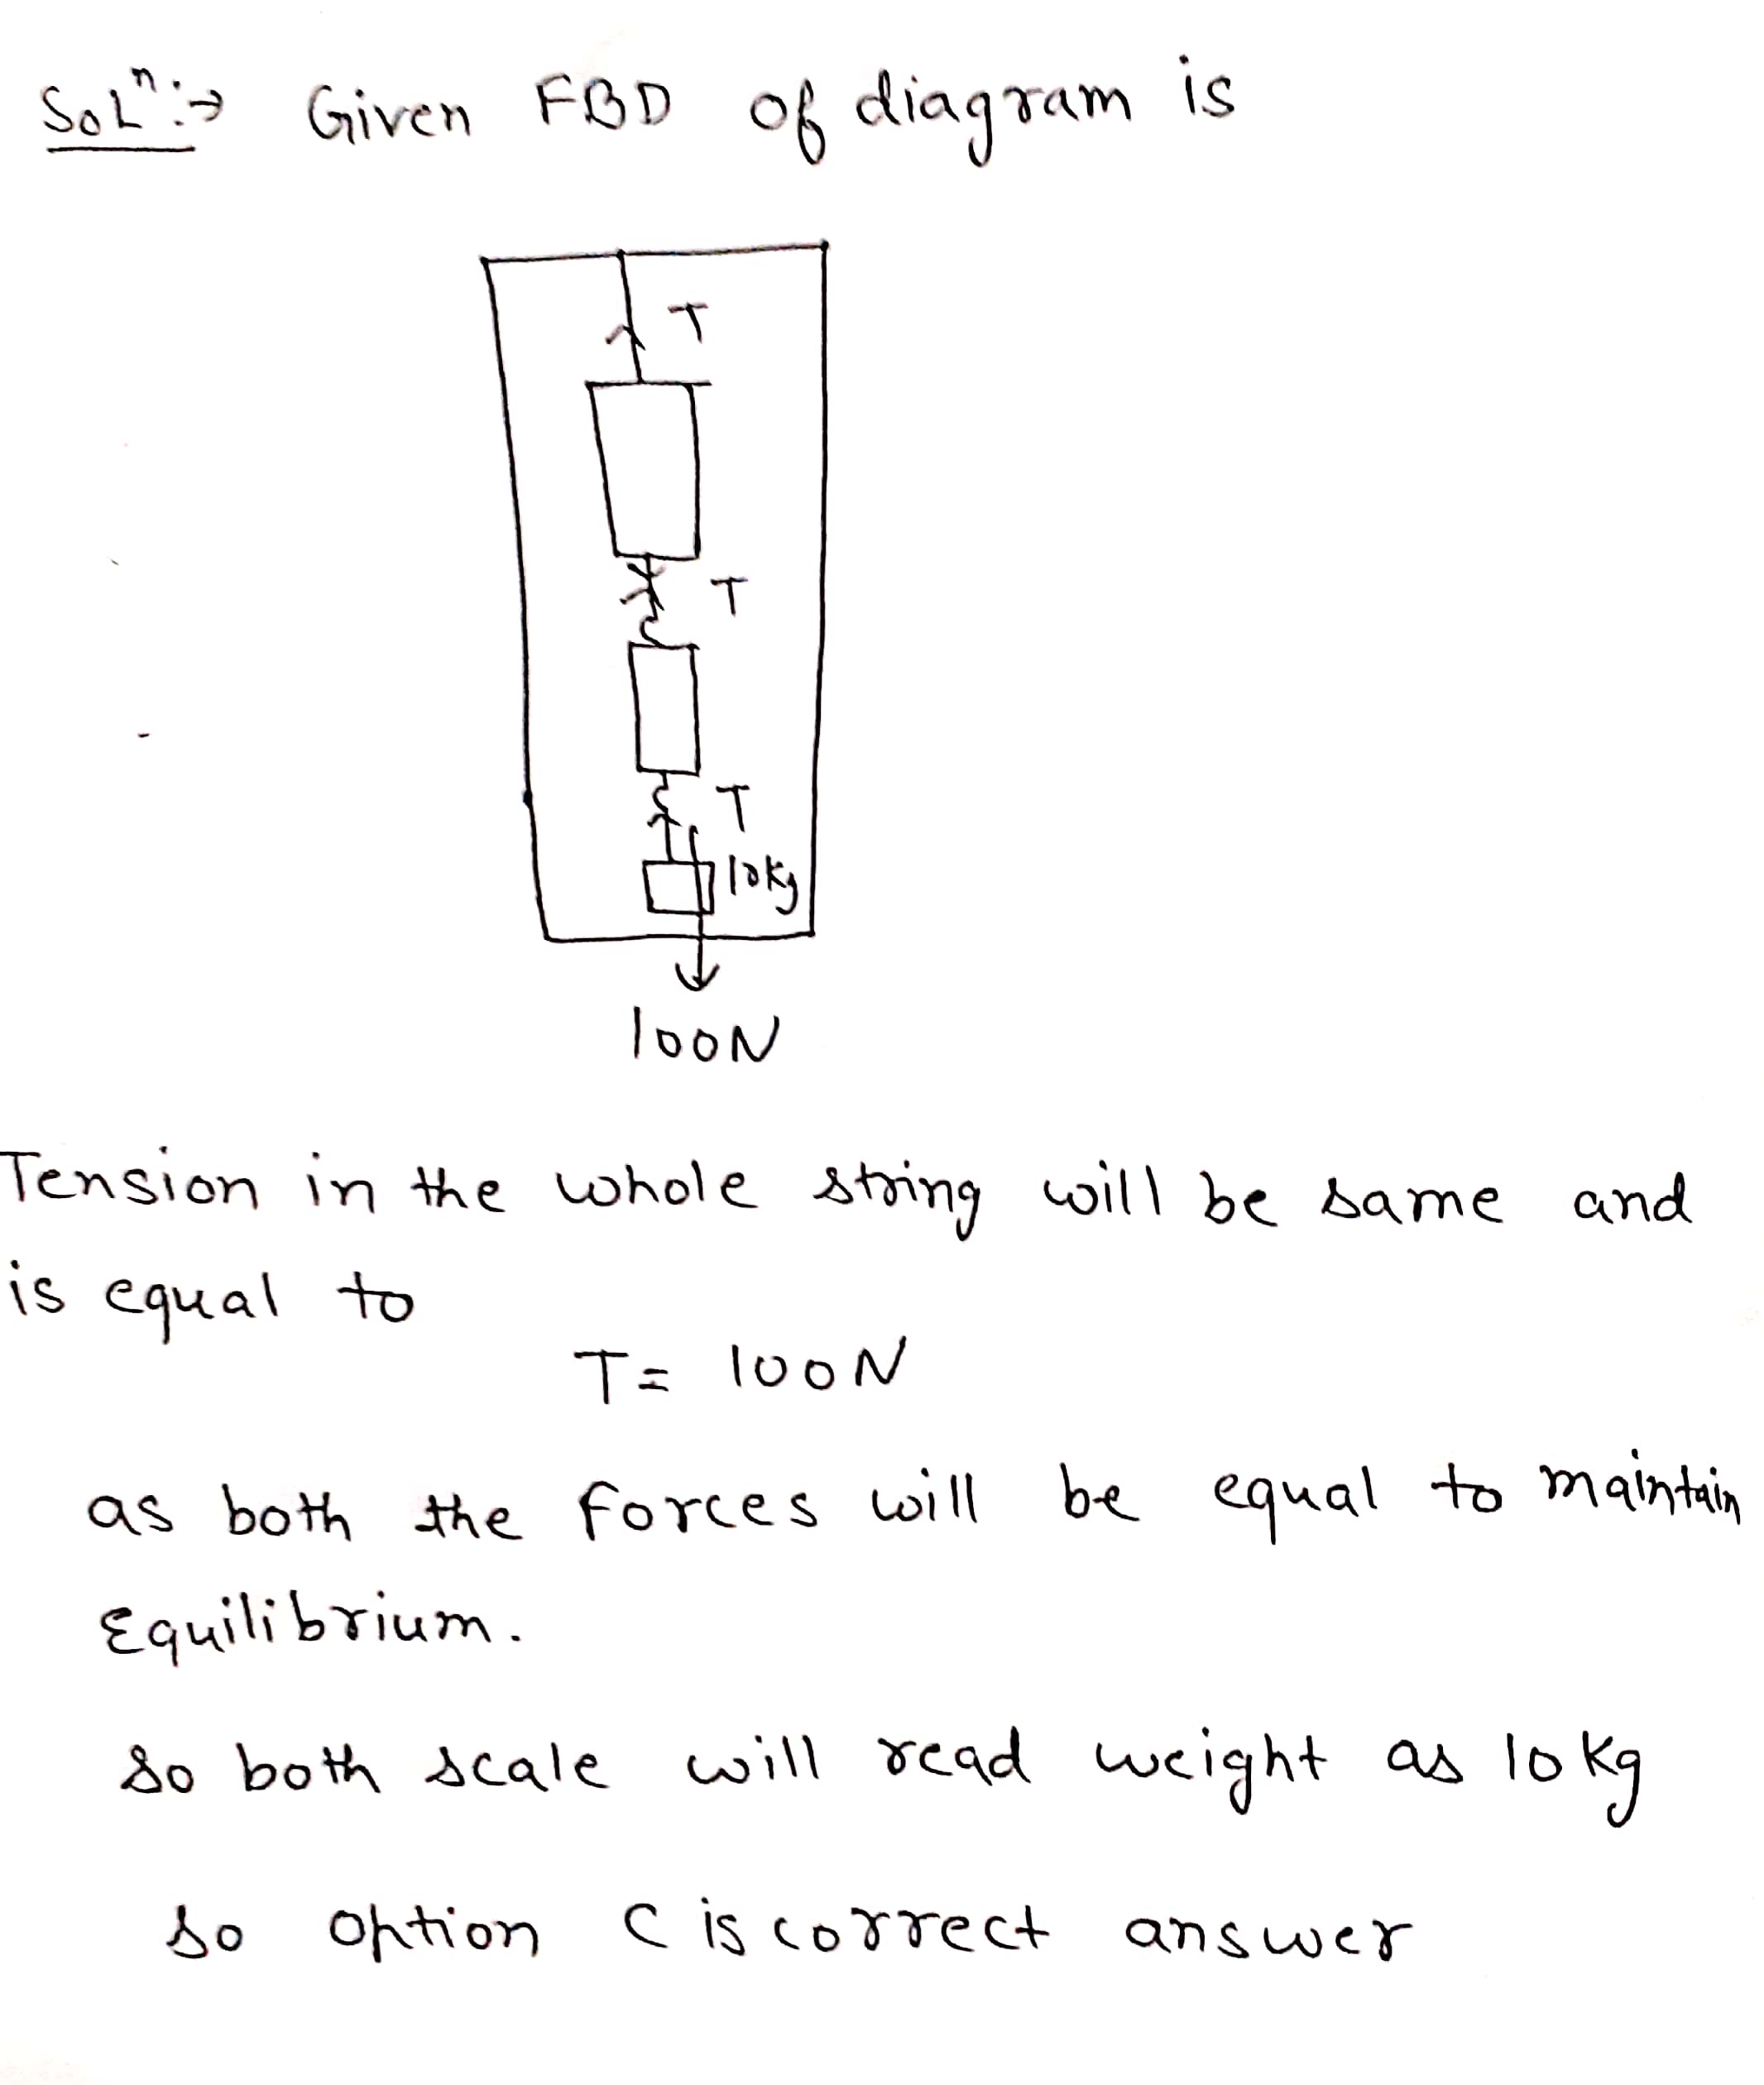 Solⁿ :→ Given FBD of diagram is
T
T
T
10kg
100N
Tension in the whole string will be same and
is equal to
T = 100N
as both the forces will be equal to maintain
Equilibrium.
So both scale will read weight as 10 kg
So option C is correct answer